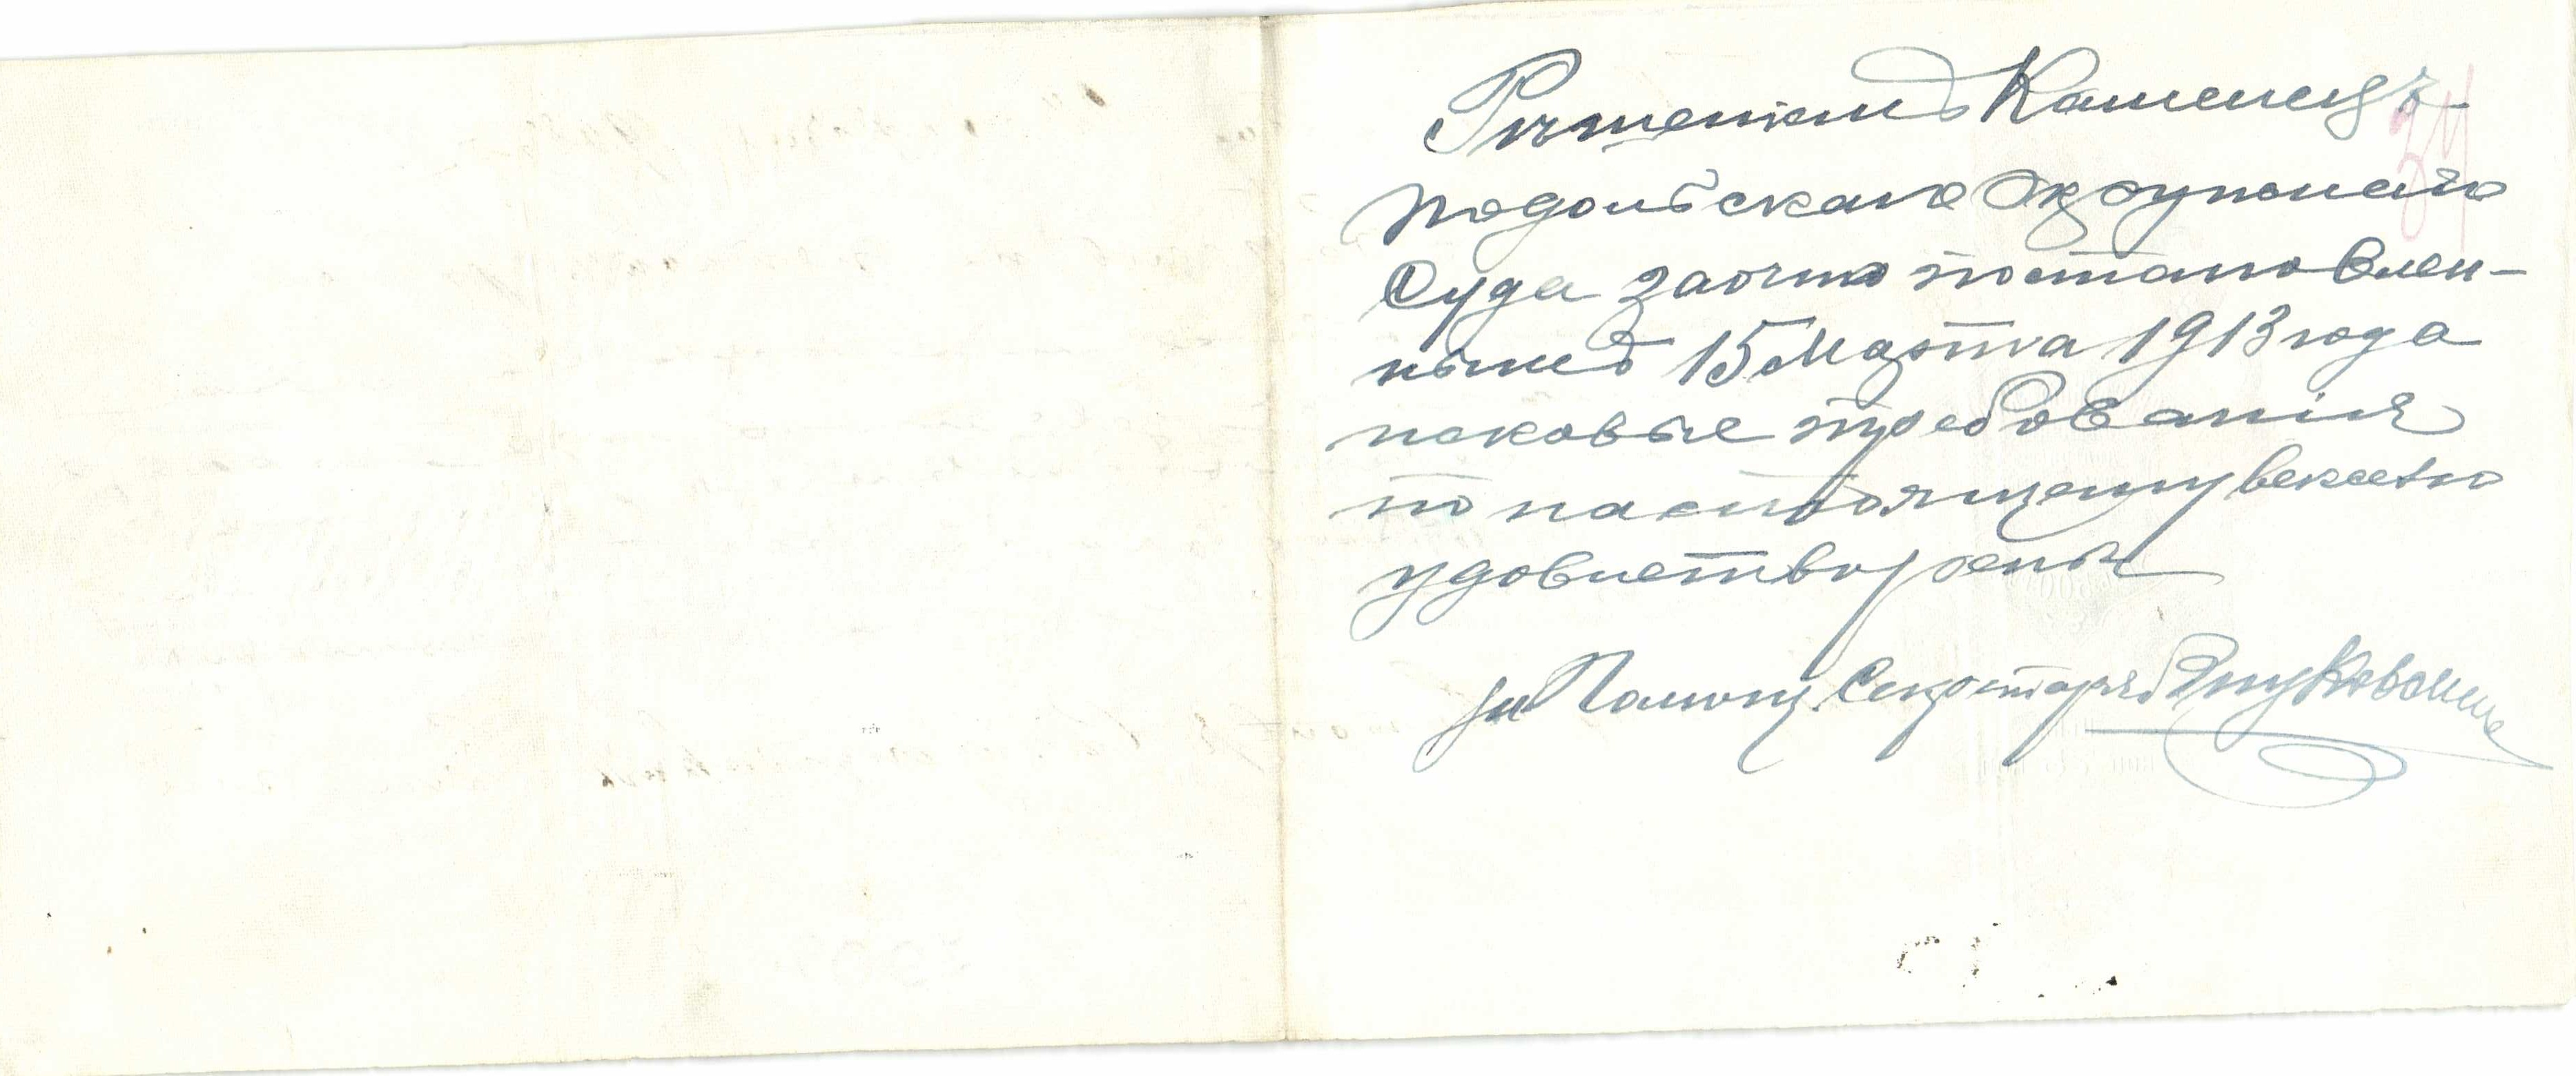 Рѣшенiемъ Каменецъ-
Подольскаго Окружнаго
Суда заочно постановлен-
нымъ 15 Марта 1913 года
исковые требованiя
по настоящему векселю
удовлетворены
Помощ. Секретаря